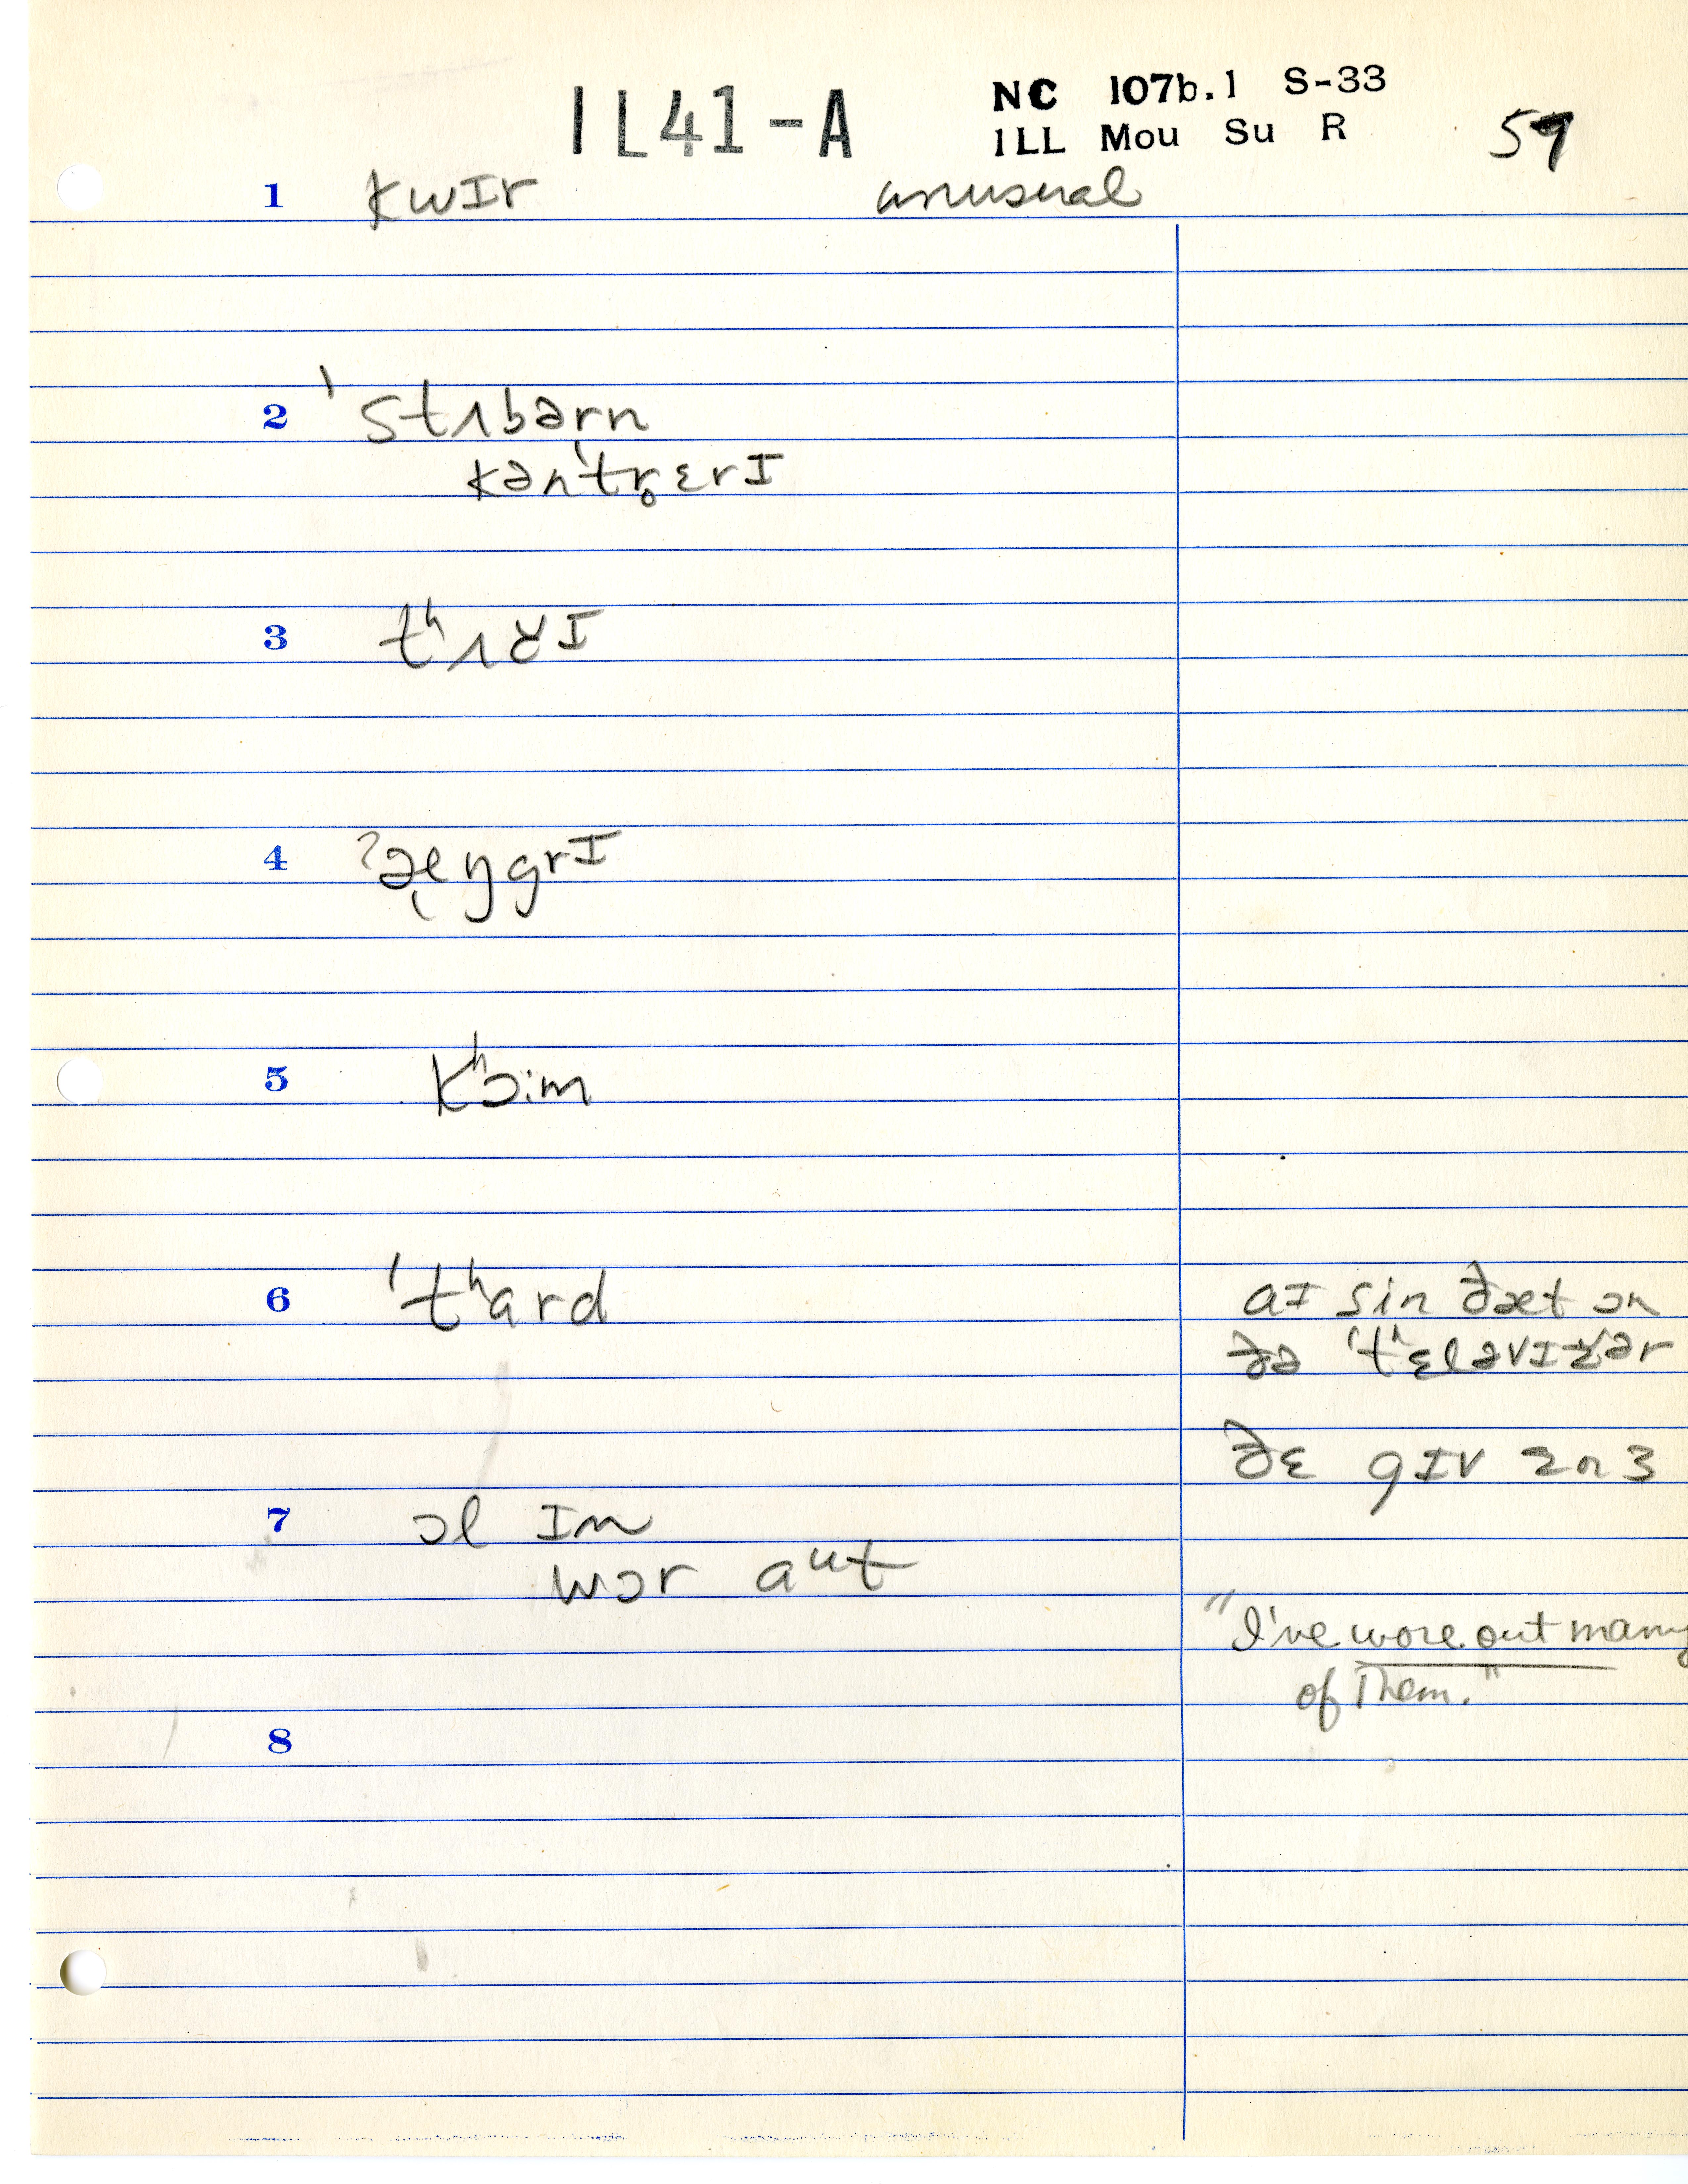 IL41-A
NC 107b.1 S-33
ILL Mou Su R
59
1 kwɪr unusual
2 ˈstʌbərn
kənˈtr̥ɛrɪ
3 tʰʌtʃɪ
4 ʔæŋgrɪ
5 kʰɔ:m
6 ˈtʰard
aɪ sin ðæt ɔn
ðə
ðɛ gɪv
7 ɔl ɪn
wɔr aut
"I've wore out many
of them."
8